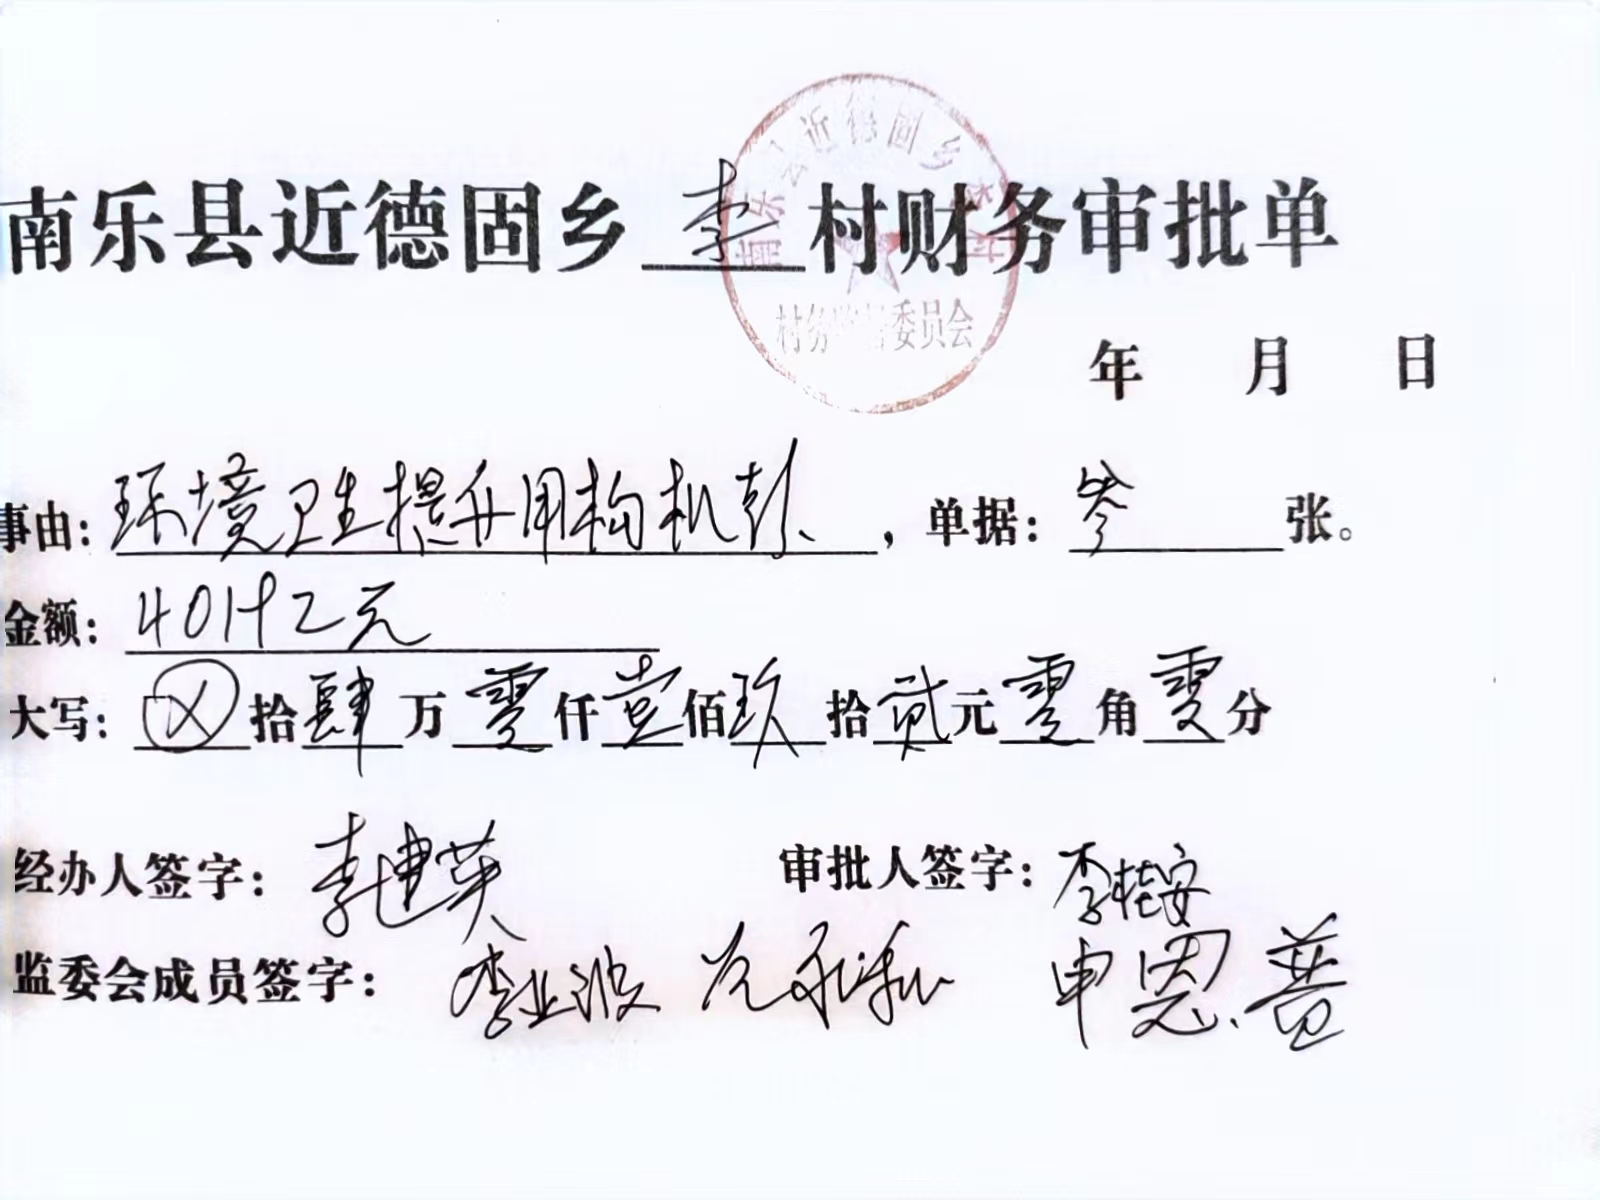 南乐县近德固乡李村财务审批单
南乐县近德固乡李村
村务监督委员会
年 月 日
事由：环境卫生提升用构机款，单据：叁张。
金额：40192元
大写：⊗拾肆万零仟壹佰玖拾贰元零角零分
经办人签字：李建英 审批人签字：李桂安
监委会成员签字：李业波 申恩普